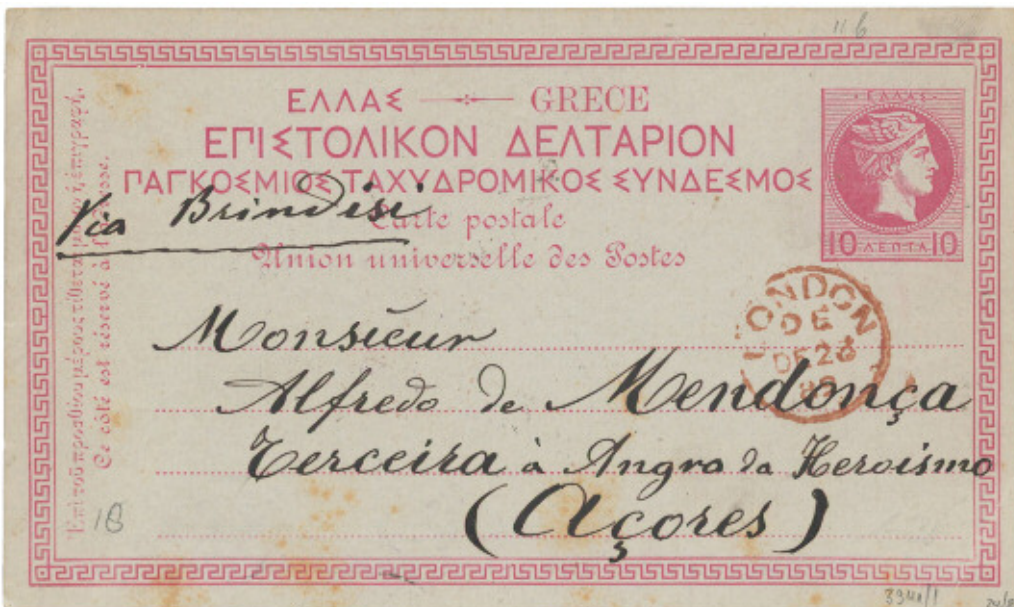 11 6
ΕΛΛΑΣ GRECE
ΕΠΙΣΤΟΛΙΚΟΝ ΔΕΛΤΑΡΙΟΝ
ΠΑΓΚΟΣΜΙΟΣ ΤΑΧΥΔΡΟΜΙΚΟΣ ΣΥΝΔΕΣΜΟΣ
Carte postale
Union universelle des Postes
·ΕΛΛΑΣ·
10 ΛΕΠΤΑ 10
Via Brindisi
LONDON
DE
DE 26
Monsieur
Alfredo de Mendonça
Terceira à Angra da Heroismo
(Açores)
Ἐπὶ τοῦ προσθίου μέρους τίθεται μόνον ἡ ἐπιγραφή.
Ce côté est réservé à l'adresse.
18